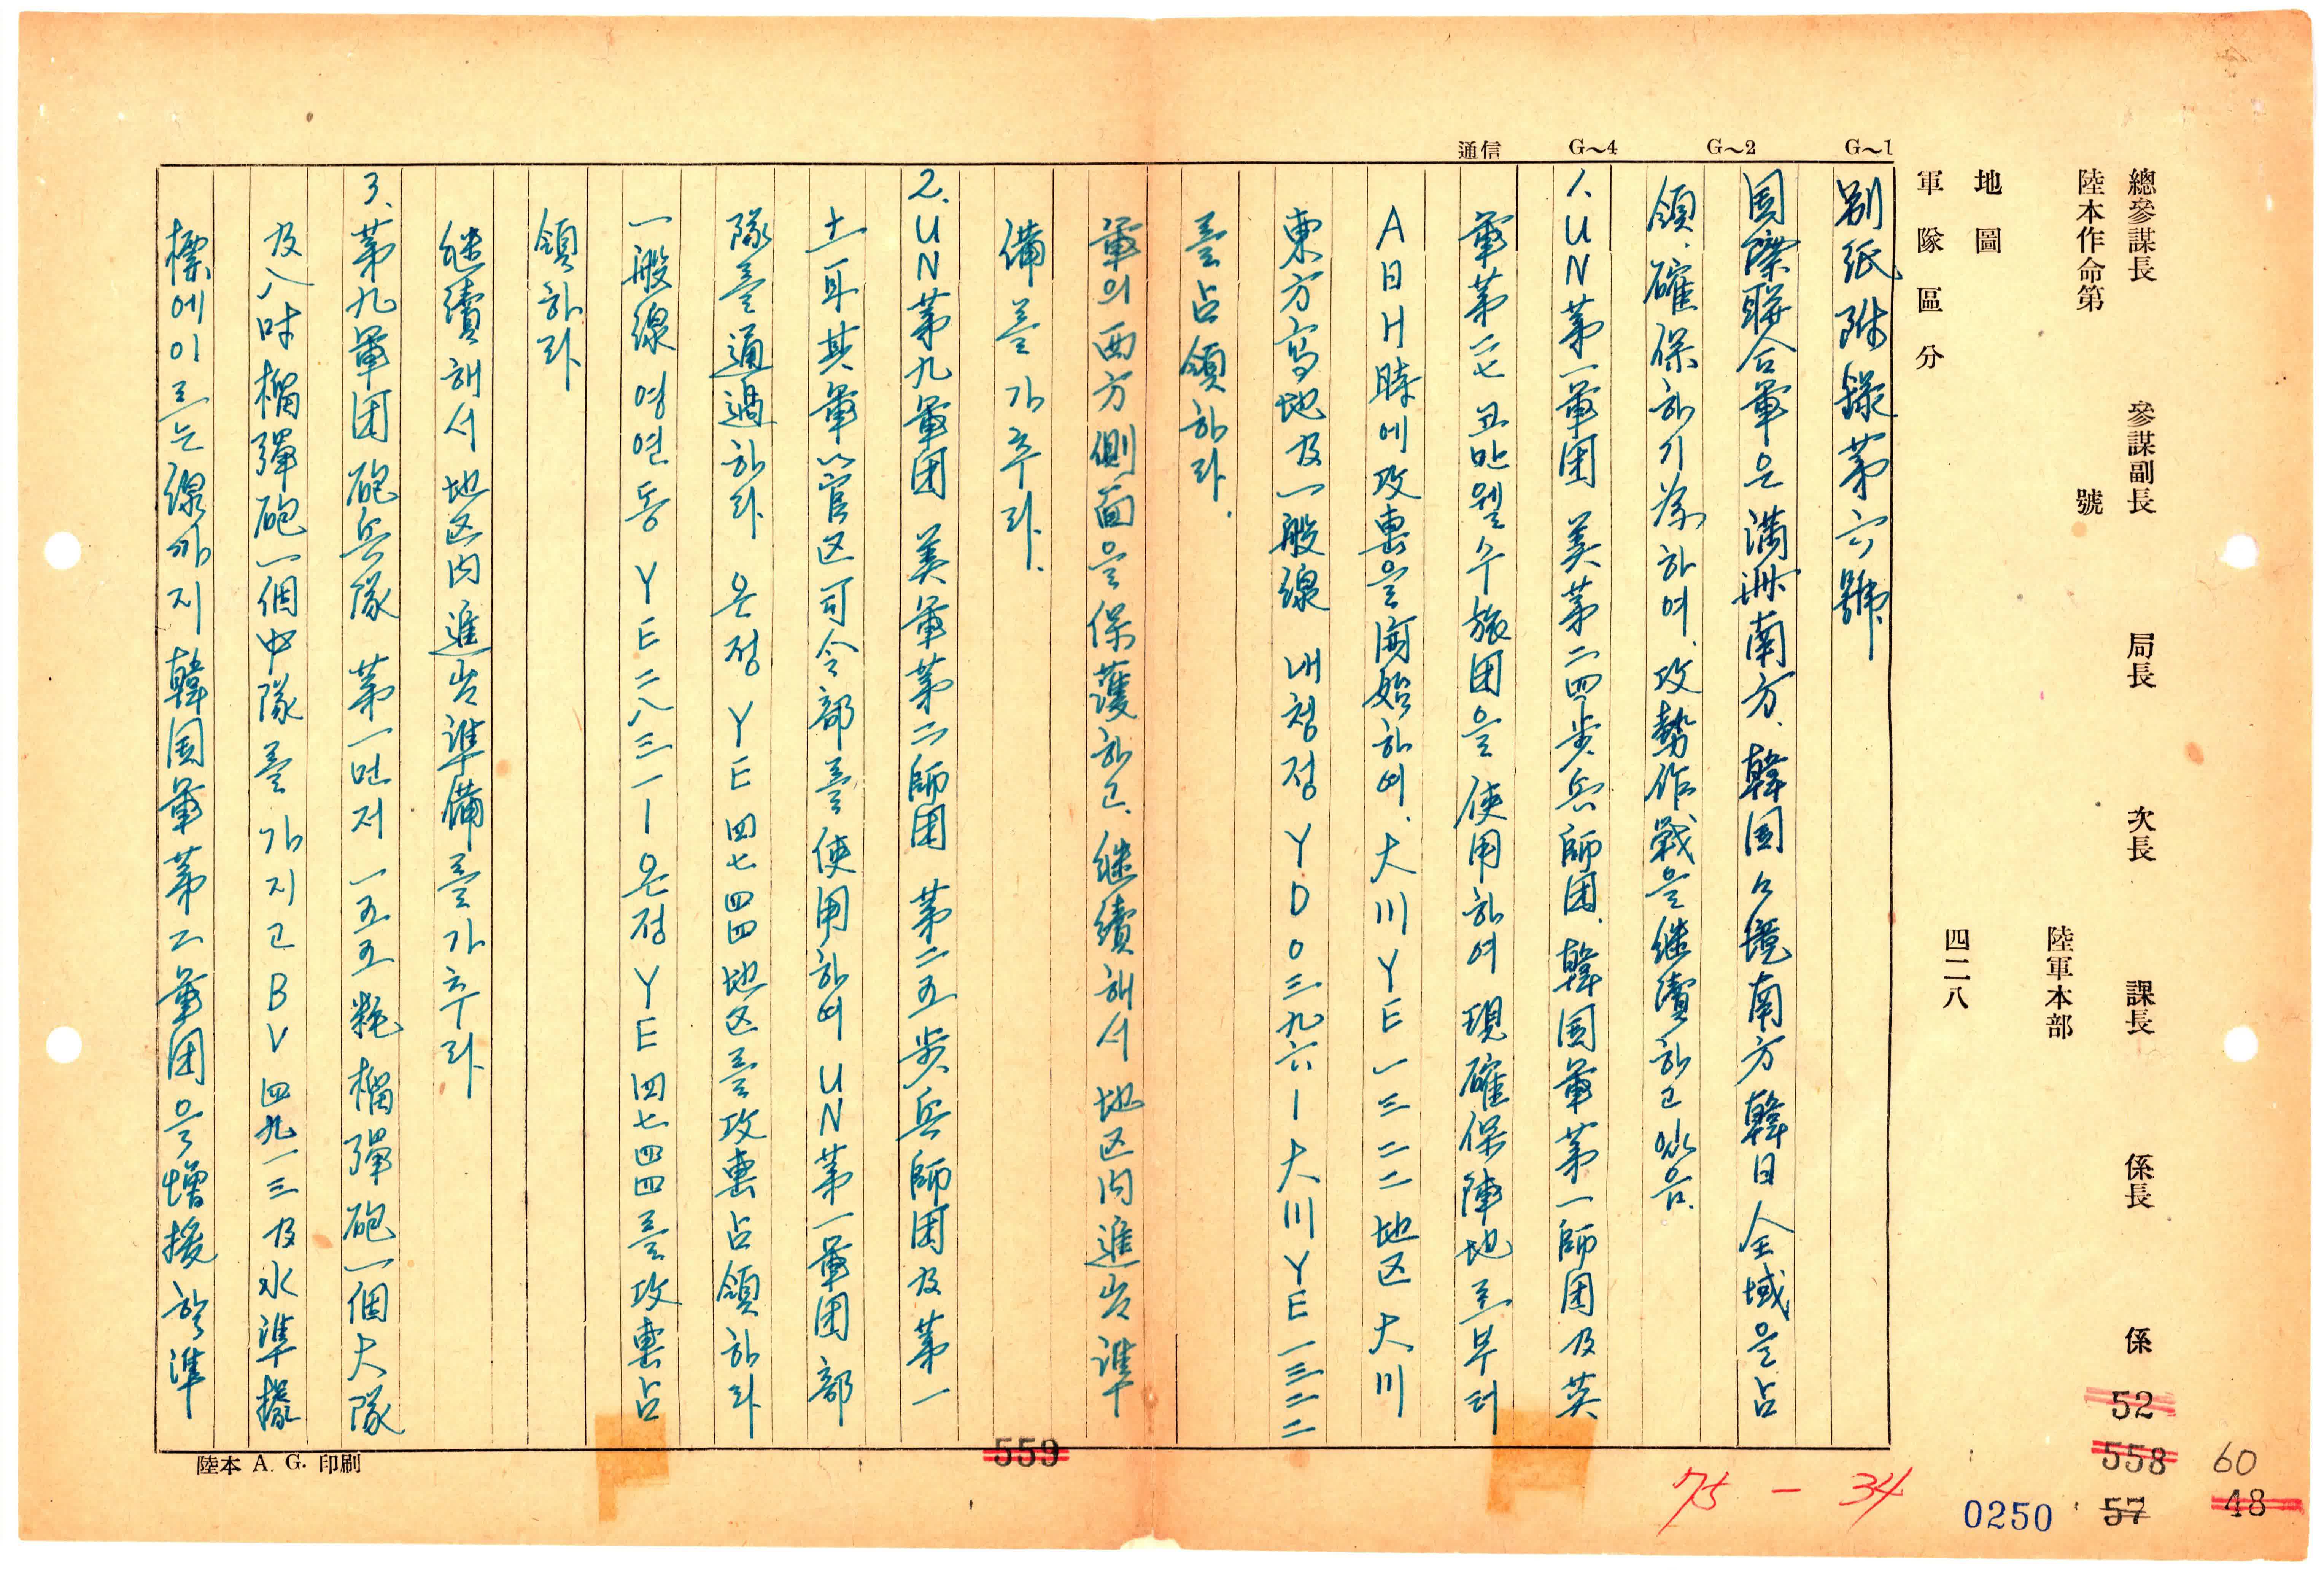 總參謀長 參謀副長 局長 次長 課長 係長 係
陸本作命第 號
陸軍本部
地圖
四二八
軍隊區分
G~1 G~2 G~4 通信
別紙附錄第六號
国際聯合軍은 満洲南方、韓国々境南方 韓日 全域을 占
領、確保하기 為하여、攻勢作戦을 継續하고 있음.
1. UN第一軍団 美第二四步兵師団、韓国軍第一師団及英
軍第二七코만웰수旅団을 使用하여 現確保陣地로부터
A日H時에 攻擊을 開始하여、大川YE一三二二地区 大川
東方高地及一般線 내청정YD0三九六 - 大川YE一三二二
를 占領하라.
軍의 西方側面을 保護하고、継續해서 地区内進出準
備를 가추라.
2. UN第九軍団 美軍第二師団 第二五步兵師団及第一
土耳其軍 以官区司令部를 使用하여 UN第一軍団部
隊를 通過하라 온정YE四七四四地区를 攻擊占領하라
一般線 영연동YE二八三一 - 온정YE四七四四를 攻擊占
領하라
継續해서 地区内進出準備를 가추라
3. 第九軍団砲兵隊 第一먼저 一五五粍榴彈砲一個大隊
及八吋榴彈砲一個中隊를 가지고 BV四九一三及水準據
標에 이르는 線까지 韓国軍第二軍団을 增援할 準
陸本 A. G. 印刷
559
75 - 34
52
558
57
60
48
0250